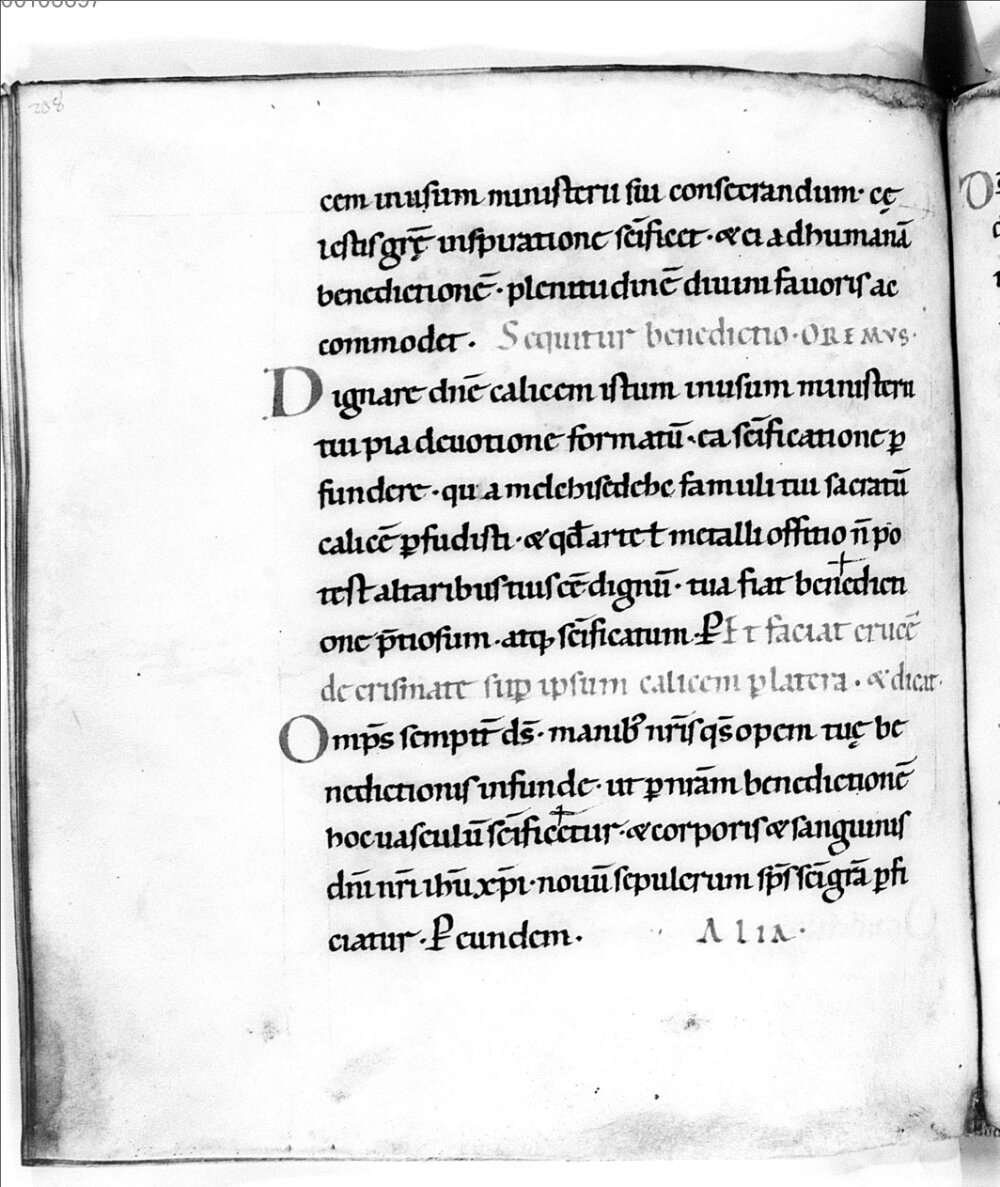 208
cem inusum ministerii sui consecrandum· cę
lestis grę̄ inspiratione sc̄ificet·&ei adhumanā
benedictionē·plenitudinē diuini fauoris ac
commodet. Sequitur benedictio·OREMVS·
Dignare dn̄e calicem istum inusum ministerii
tui pia deuotione formatū·ea sc̄ificatione ꝑ
fundere·qua melchisedehc famuli tui sacratū
calicē ꝑfudisti·& qđ arte ł metalli offitio n̄ po
test altaribus tuis eē dignū·tua fiat bene✝dicti
one p̄tiosum·atq; sc̄ificatum·Ꝑ Et faciat crucē
de crismate suꝑ ipsum calicem ꝑ latera·& dicat·
Omp̄s sempit̄ ds̄·manib; nr̄is qs̄ opem tuę be
nedictionis infunde·ut ꝑ nr̄am benedictionē
hoc uasculū sc̄ifice✝tur·& corporis & sanguinis
dn̄i nr̄i ihū xp̄i·nouū sepulcrum sp̄s sc̄i gr̄a ꝑfi
ciatur·Ꝑ eundem· ALIA·